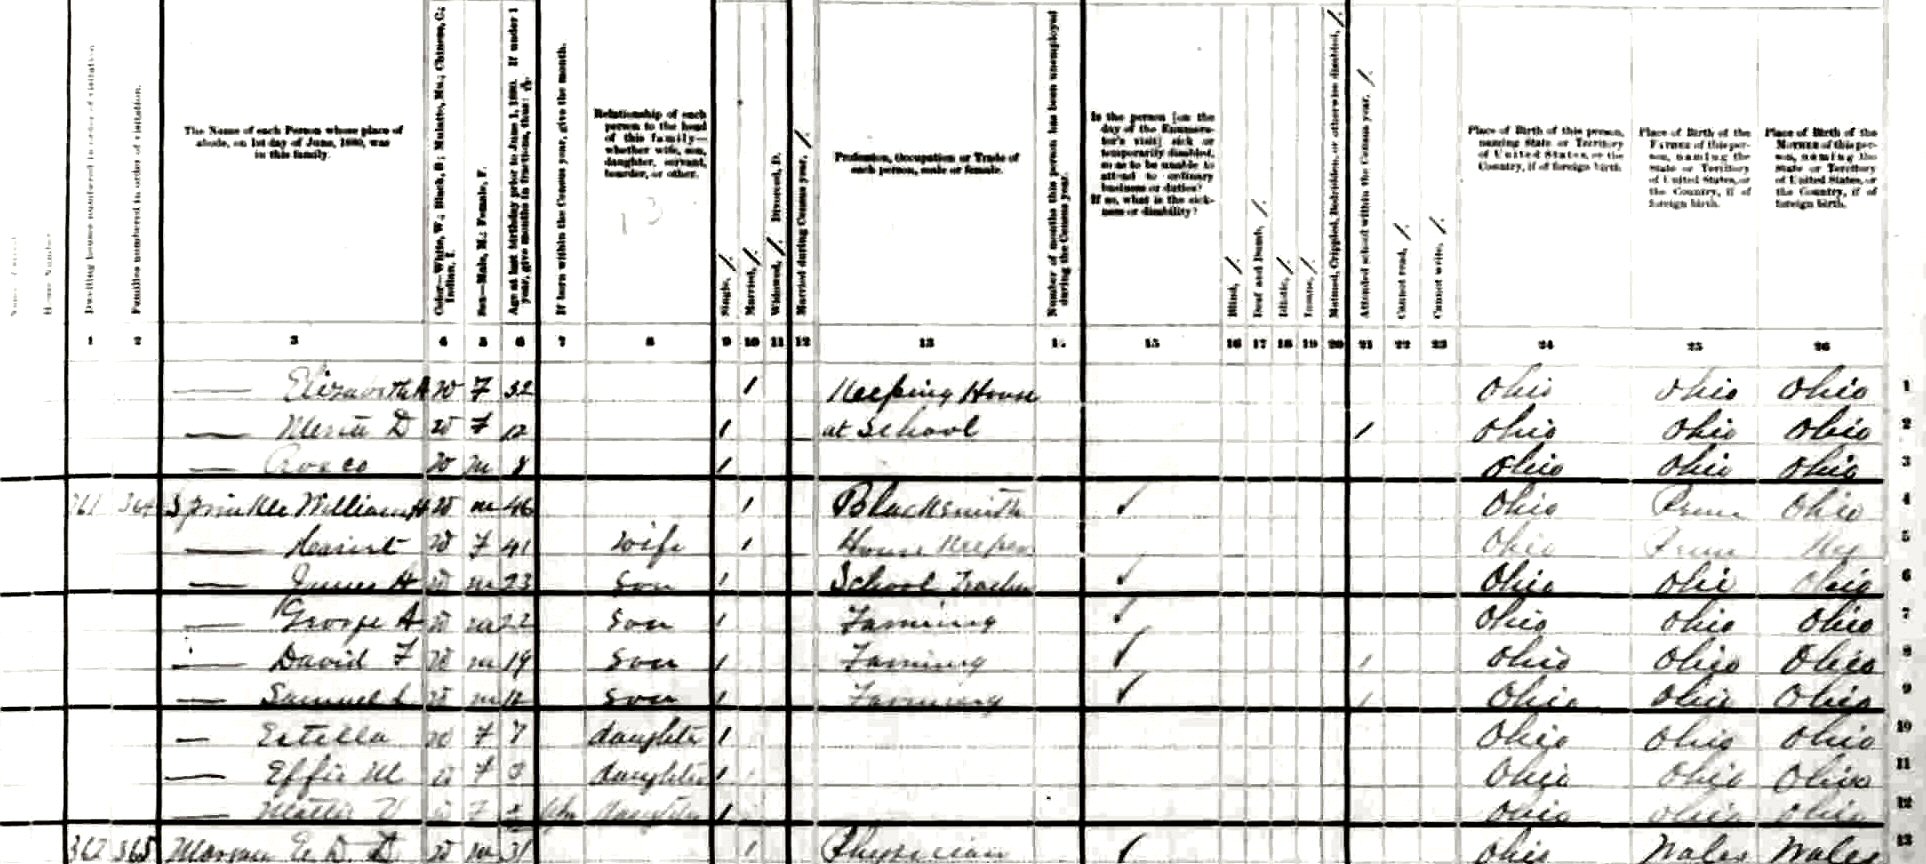 Dwelling houses numbered in order of visitation.
Families numbered in order of visitation.
The Name of each Person whose place of
abode, on 1st day of June, 1880, was
in this family.
Color—White, W.; Black, B.; Mulatto, Mu.; Chinese, C.;
Indian, I.
Sex—Male, M.; Female, F.
Age at last birthday prior to June 1, 1880. If under 1
year, give months in fractions, thus:
If born within the Census year, give the month.
Relationship of each
person to the head
of this family—
whether wife, son,
daughter, servant,
boarder, or other.
Single, /.
Married, /.
Widowed, /. Divorced, D.
Married during Census year, /.
Profession, Occupation or Trade of
each person, male or female.
Number of months this person has been unemployed
during the Census year.
Is the person [on the
day of the Enumera-
tor's visit] sick or
temporarily disabled,
so as to be unable to
attend to ordinary
business or duties?
If so, what is the sick-
ness or disability?
Blind, /.
Deaf and Dumb, /.
Idiotic, /.
Insane, /.
Maimed, Crippled, Bedridden, or otherwise disabled, /.
Attended school within the Census year, /.
Cannot read, /.
Cannot write, /.
Place of Birth of this person,
naming State or Territory
of United States, or the
Country, if of foreign birth.
Place of Birth of the
Father of this per-
son, naming the
State or Territory
of United States, or
the Country, if of
foreign birth.
Place of Birth of the
Mother of this per-
son, naming the
State or Territory
of United States, or
the Country, if of
foreign birth.
1 2 3 4 5 6 7 8 9 10 11 12 13 14 15 16 17 18 19 20 21 22 23 24 25 26
— Elizabeth A W F 32 / Keeping House Ohio Ohio Ohio 1
— D W F 12 / at School / Ohio Ohio Ohio 2
— Rosco W M 8 / Ohio Ohio Ohio 3
361 364 Sprinkle William H W M 46 / Blacksmith ✓ Ohio Penn Ohio 4
— W F 41 Wife / House Keeper Ohio Penn Ky 5
— James H W M 23 Son / School Teacher ✓ Ohio Ohi Ohio 6
— George A W M 22 Son / Farming ✓ Ohio Ohio Ohio 7
— David F W M 19 Son / Farming ✓ / Ohio Ohio Ohio 8
— Samuel L W M Son / Farming ✓ / Ohio Ohio Ohio 9
— Estella W F 7 daughter / Ohio Ohio Ohio 10
— Effie M W F 3 daughter / Ohio Ohio Ohio 11
— Mattie W F daughter / Ohio Ohio Ohio 12
362 365 Morgan E. D. D W M 31 / Physician ✓ Ohio Wales Wales 13